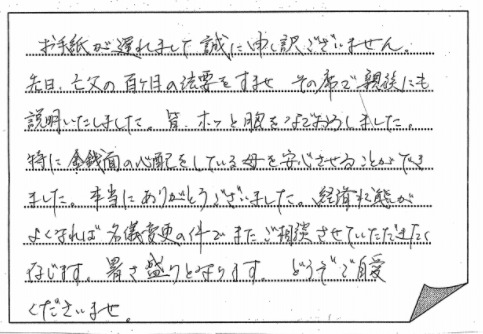 お手紙が遅れまして誠に申し訳ございません。
先日、亡父の百ヶ日の法要をすませ その席で親族にも
説明いたしました。皆、ホッと胸をなでおろしました。
特に金銭面の心配をしている母を安心させることができ
ました。本当にありがとうございました。経済状態が
よくなれば名儀変更の件でまたご相談させていただきたく
存じます。暑さ盛りとなります。どうぞご自愛
くださいませ。